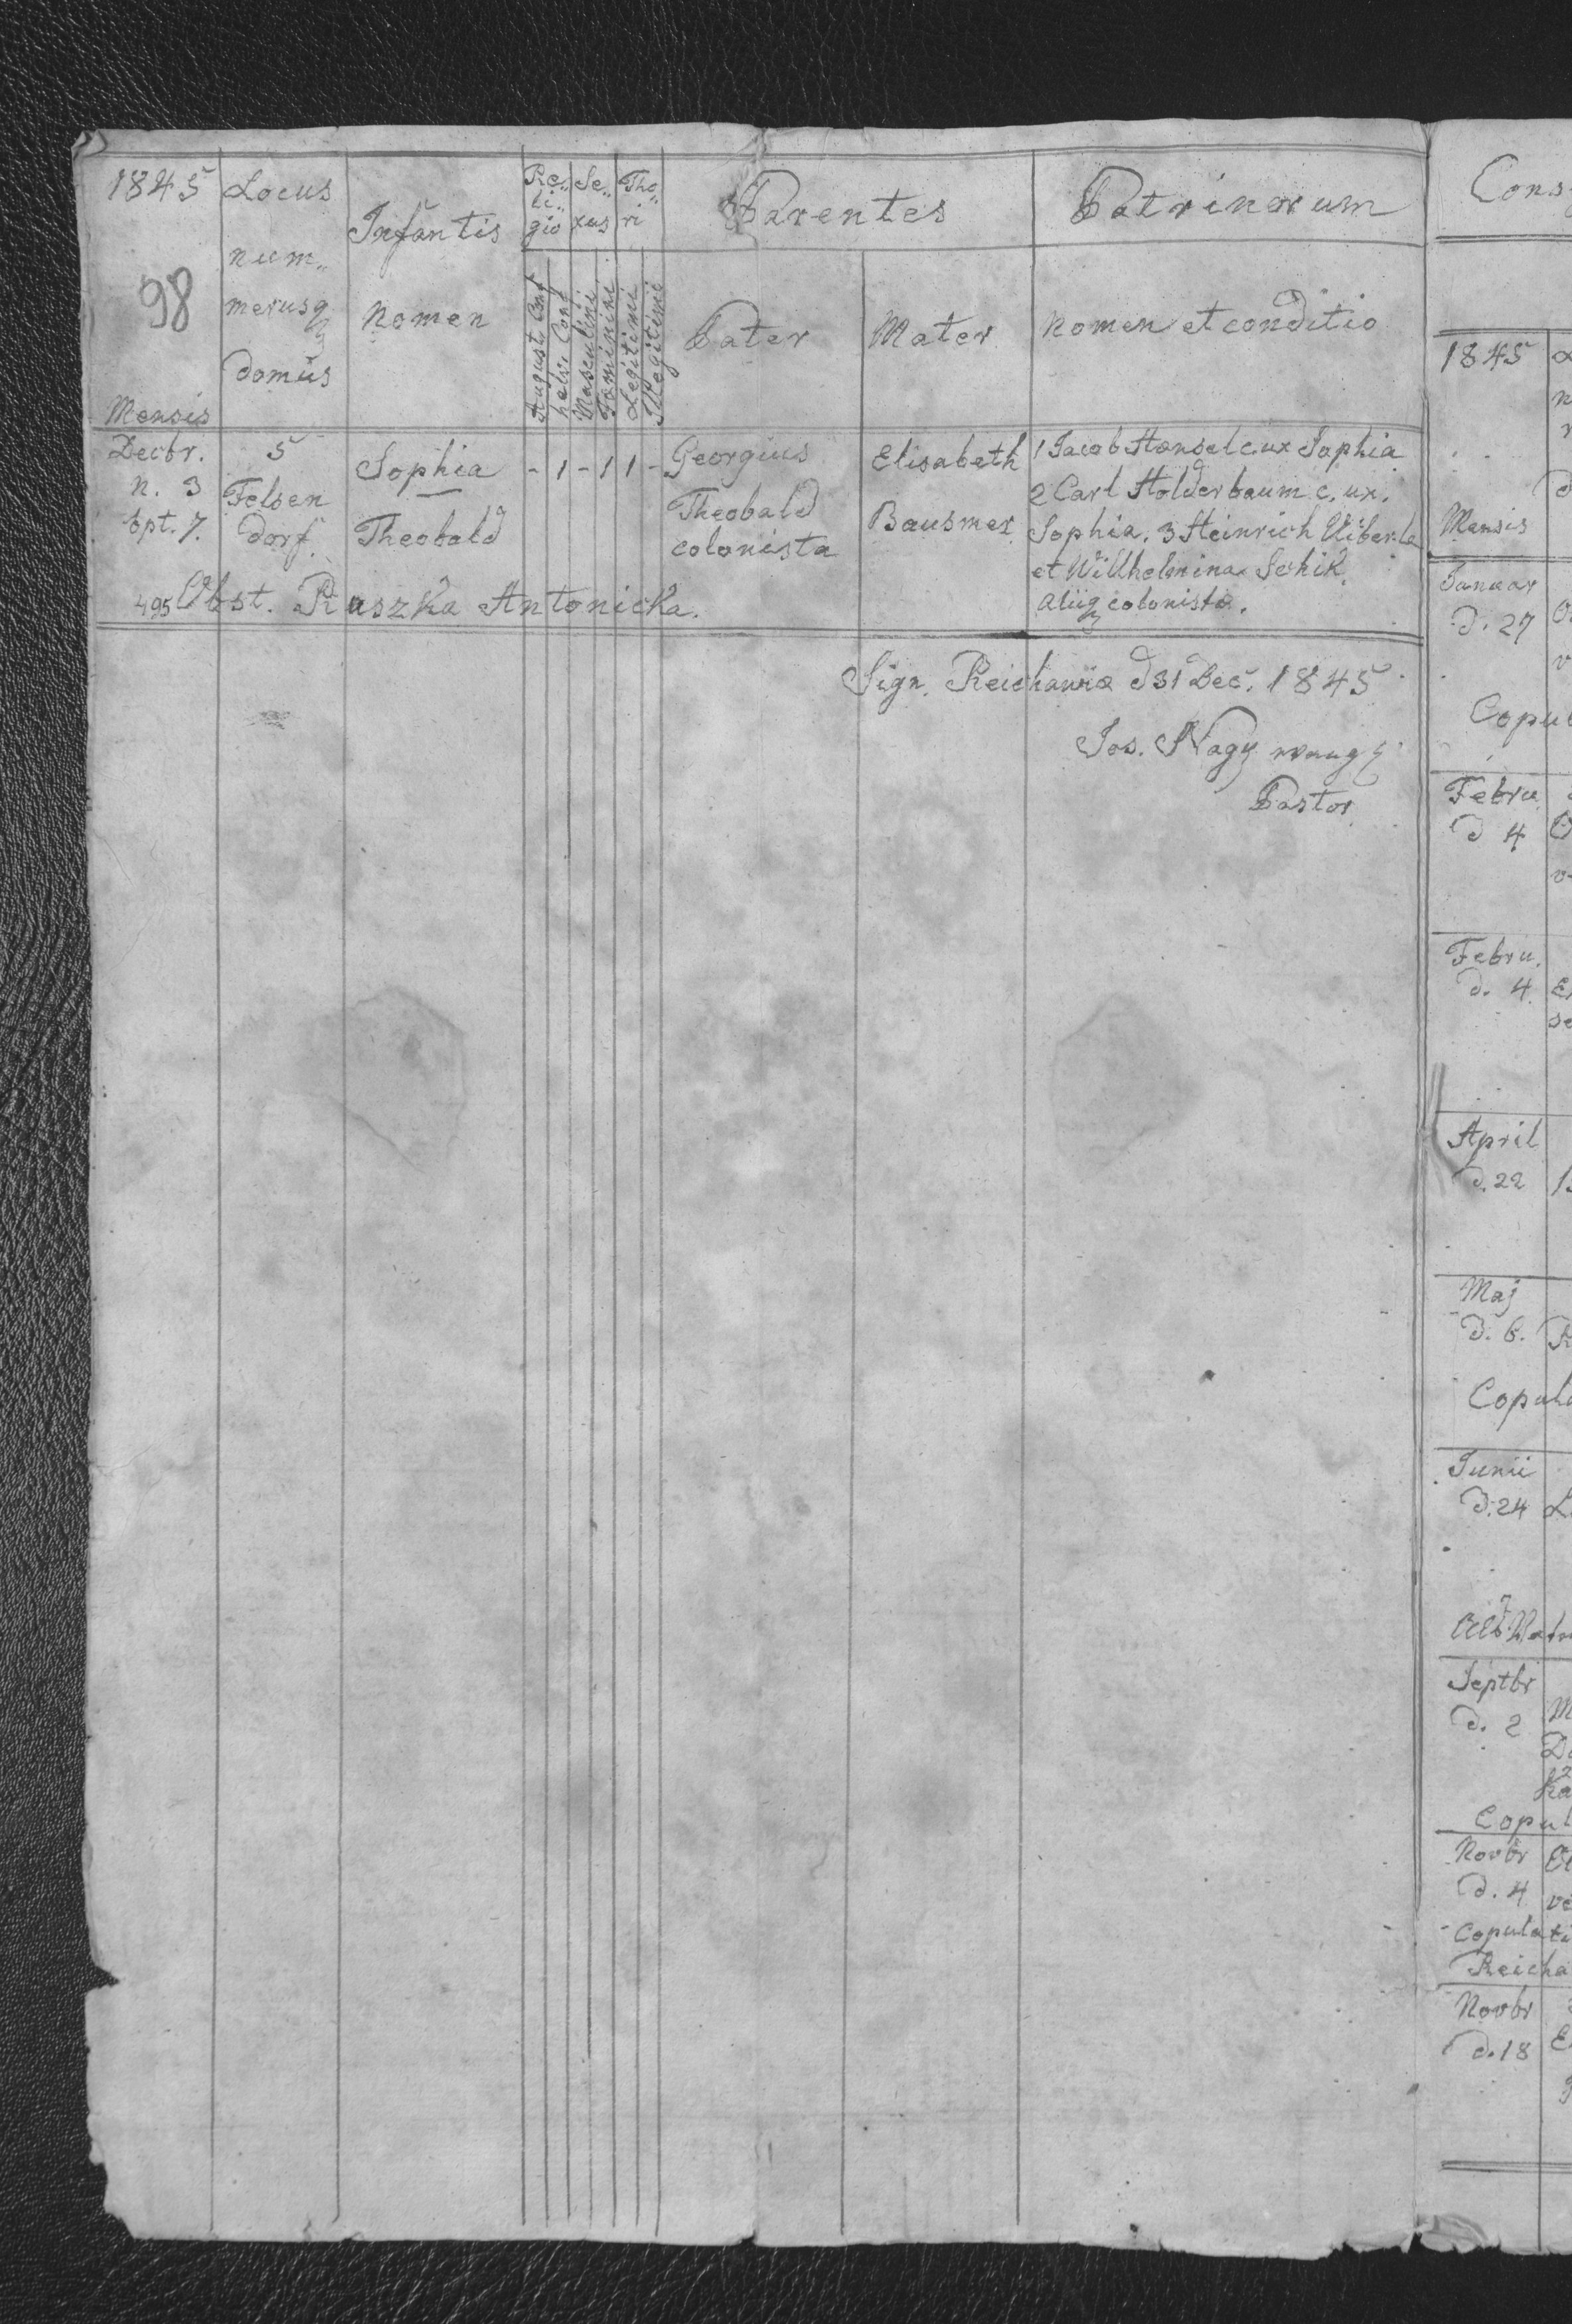 1845
98
Mensis
Locus
num„
merusq
domus
Infantis
nomen
Re„
li„
gio
Se„
xus
Tho„
ri
August Conf
helv Conf
Masculini
Faminini
Legitimi
Illegitimi
Parentes
Pater
Mater
Patrinorum
nomen et conditio
Decbr.
n. 3
bpt. 7.
5
Felsen
dorf.
Sophia
Theobald
- 1 - 1 1 -
Georgius
Theobald
colonista
Elisabeth
Bausmer
1 Jacob Hansel c. ux Sophia
2 Carl Holderbaum c. ux.
Sophia. 3 Heinrich Uiberle
et Willhelmina Schik
aliiq colonistæ.
495 Obst. Ruszka Antonicka.
Sign. Reichawiæ d 31 Dec. 1845
Jos. Nagy
Pastor
Cons
1845
Mensis
Januar
d. 27
Copul
Febru
d 4
Febru.
d. 4
April
d. 22
Maj
d. 6.
Copula
Junii
d. 24
Septbr
d. 2
Copul
Novbr
d. 4
Copulati
Reicha
Novbr
d. 18